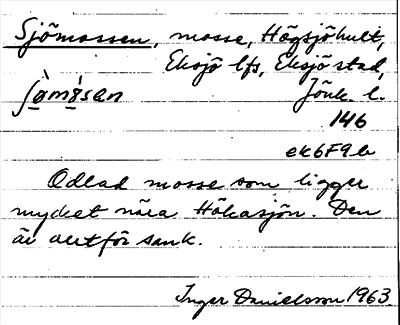 Sjömossen, mosse, Högsjöhult,
Eksjö lfs, Eksjö stad,
ʃø̀mósan Jönk. l.
146
ek6F9b
Odlad mosse som ligger
mycket nära Hökasjön. Den
är allt för sank.
Inger Danielsson 1963.